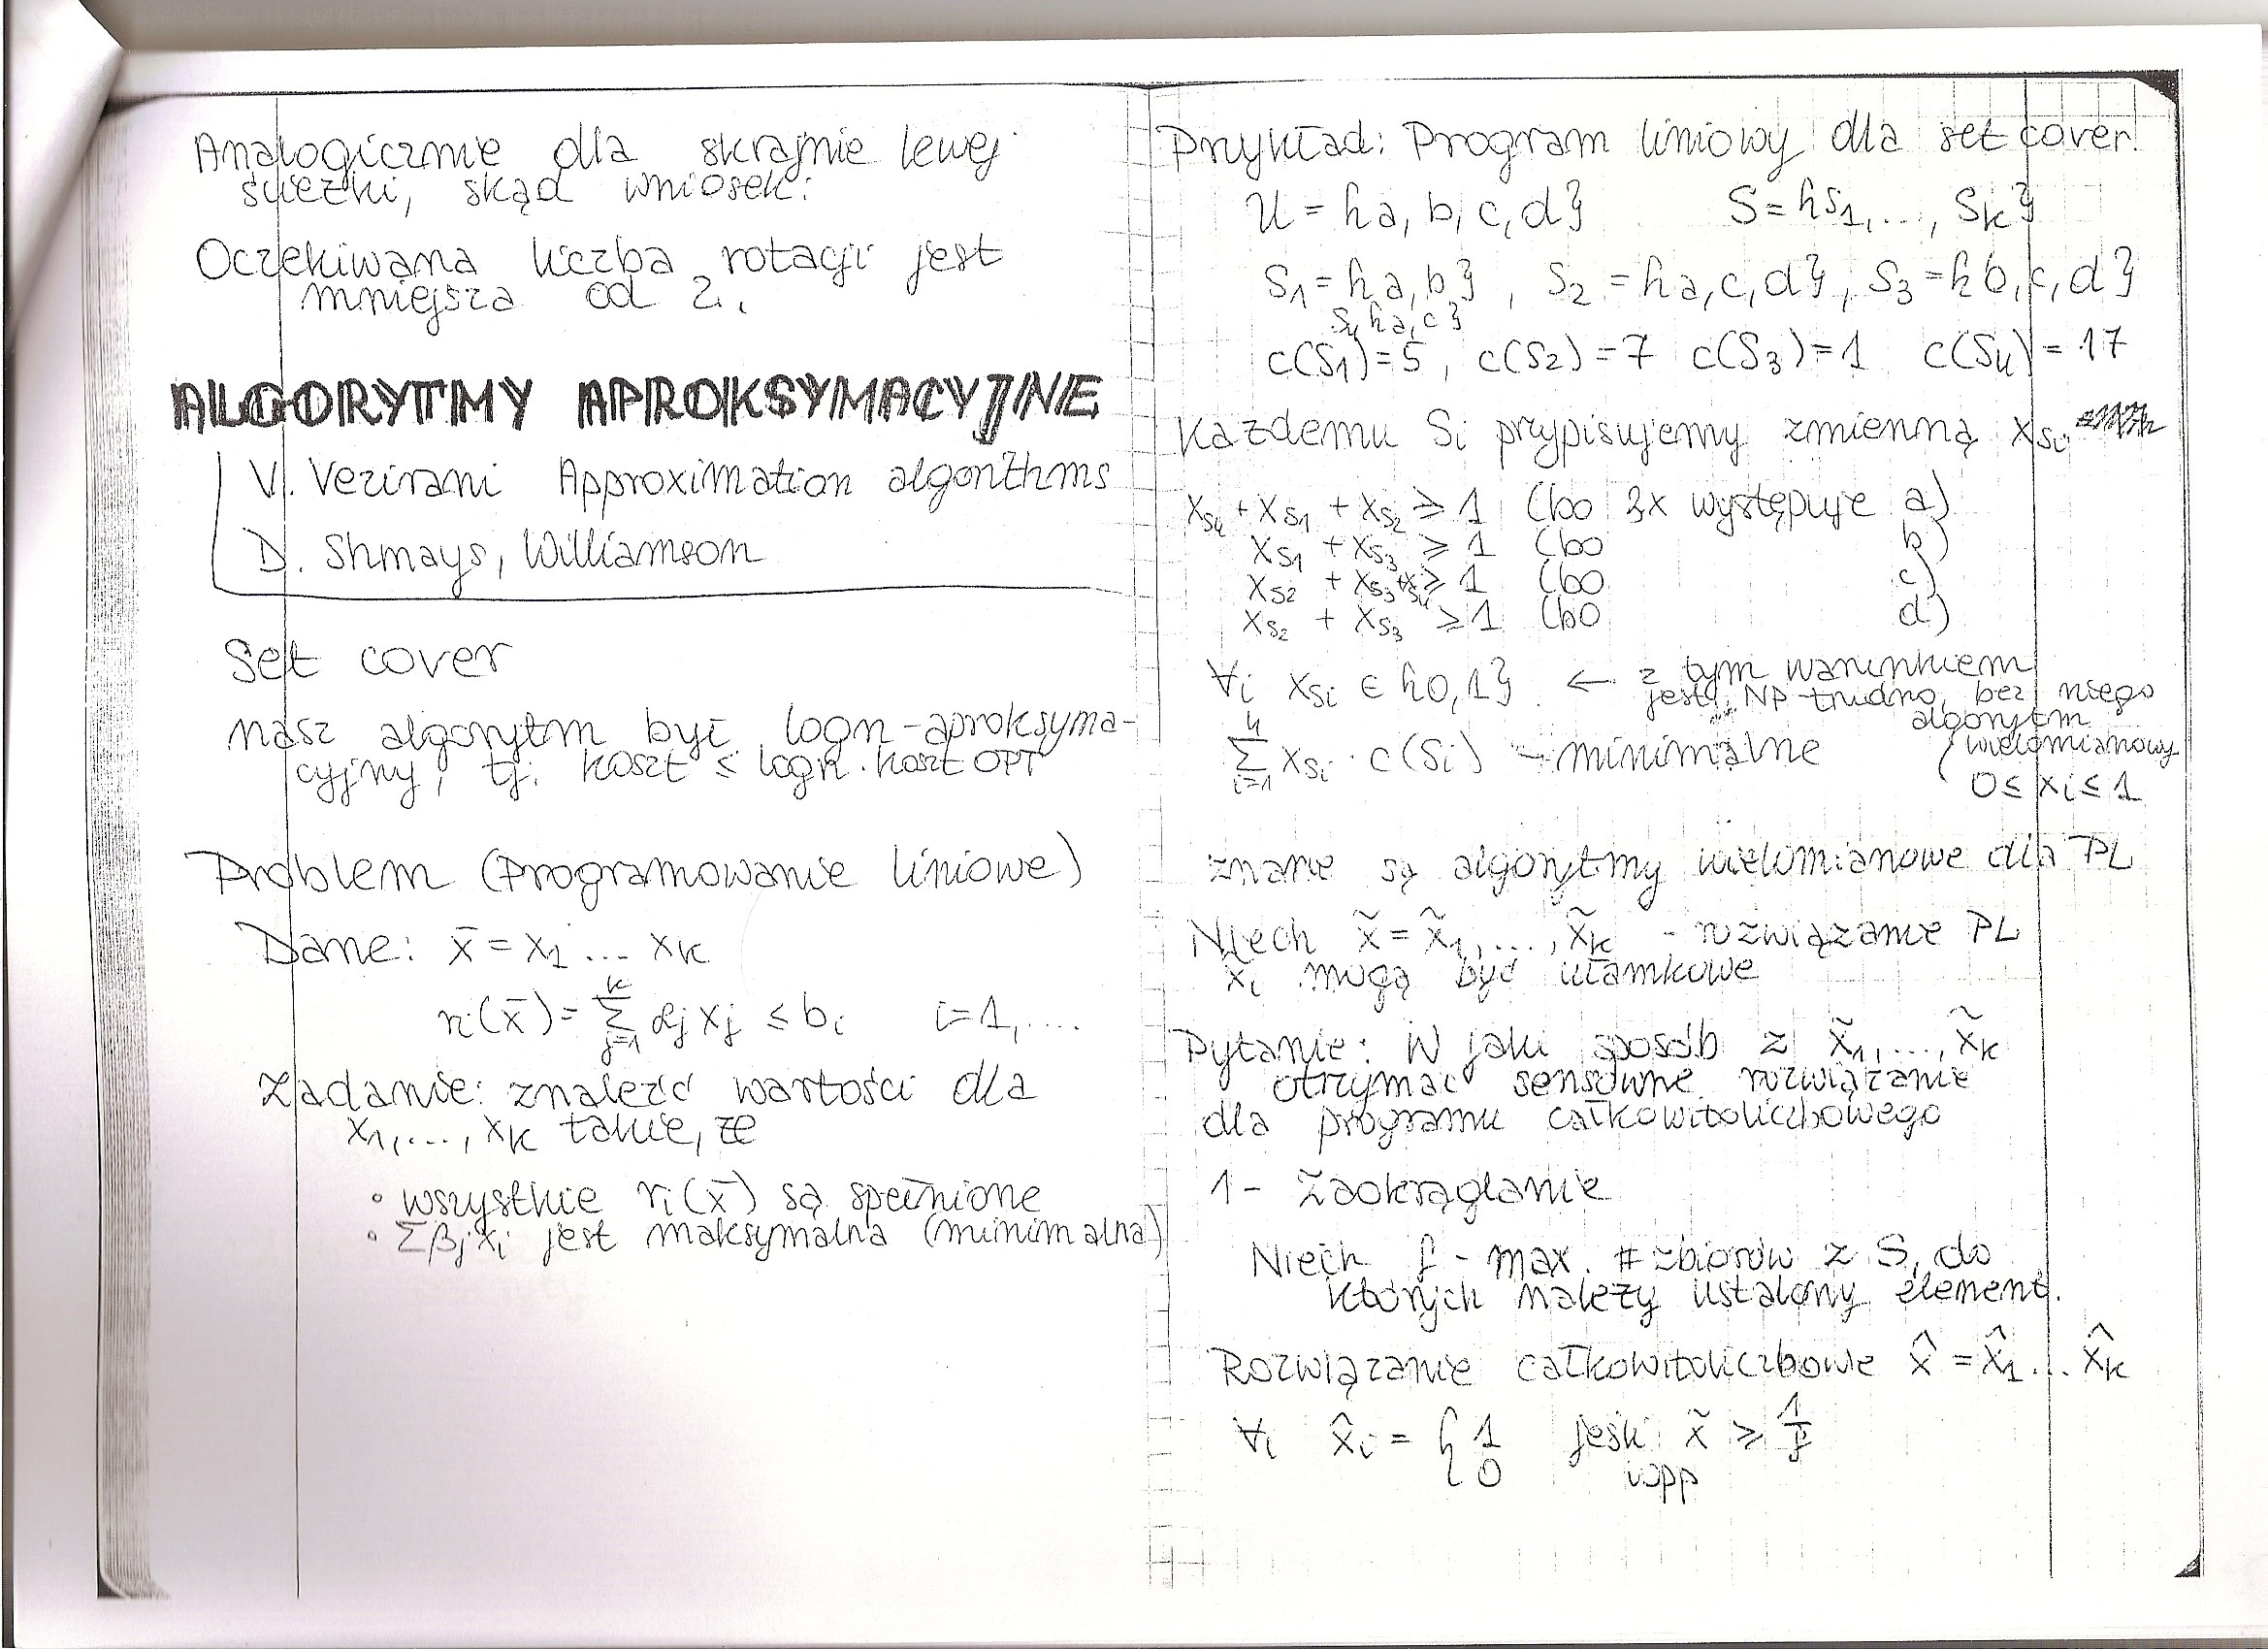 Analogicznie dla skrajnie lewej
ścieżki, skąd wniosek:
Oczekiwana liczba rotacji jest
mniejsza od 2.
ALGORYTMY APROKSYMACYJNE
V. Vezirani Approximation algorithms
D. Shmays, Williamson
Set cover
nasz algorytm był logn-aproksyma-
cyjny, tj. koszt ≤ logn · koszt OPT
Problem (Programowanie liniowe)
Dane: x̄ = x₁ ... xₖ
rᵢ(x̄) = Σⱼ₌₁ᵏ αⱼ xⱼ ≤ bᵢ i=1,....
Zadanie: znaleźć wartości dla
x₁,..., xₖ takie, że
• wszystkie rᵢ(x̄) są spełnione
• Σβⱼxᵢ jest maksymalna (minimalna)
Przykład: Program liniowy dla set cover.
U = {a, b, c, d} S = {S₁,..., Sₖ}
S₁ = {a, b}, S₂ = {a, c, d}, S₃ = {b, c, d}
S₄ {a, c}
c(S₁) = 5, c(S₂) = 7 c(S₃) = 1 c(S₄) = 17
Każdemu Si przypisujemy zmienną x_Si
x_S₄ + x_S₁ + x_S₂ ≥ 1 (bo 3x występuje a)
x_S₁ + x_S₃ ≥ 1 (bo b)
x_S₂ + x_S₃ + x_S₄ ≥ 1 (bo c)
x_S₂ + x_S₃ ≥ 1 (bo d)
∀i x_Si ∈ {0,1} ← z tym warunkiem
jest NP-trudno, bez niego
algorytm
wielomianowy
Σᵢ₌₁⁴ x_Si · c(Si) - minimalne
0 ≤ xᵢ ≤ 1
znane są algorytmy wielomianowe dla PL
Niech x̃ = x̃₁,..., x̃ₖ - rozwiązanie PL
x̃ᵢ mogą być ułamkowe
Pytanie: W jaki sposób z x̃₁,..., x̃ₖ
otrzymać sensowne rozwiązanie
dla programu całkowitoliczbowego
1 - Zaokrąglanie
Niech f - max. # zbiorów z S, do
których należy ustalony element.
Rozwiązanie całkowitoliczbowe x̂ = x̂₁... x̂ₖ
∀i x̂ᵢ = { 1 jeśli x̃ ≥ 1/f
0 wpp